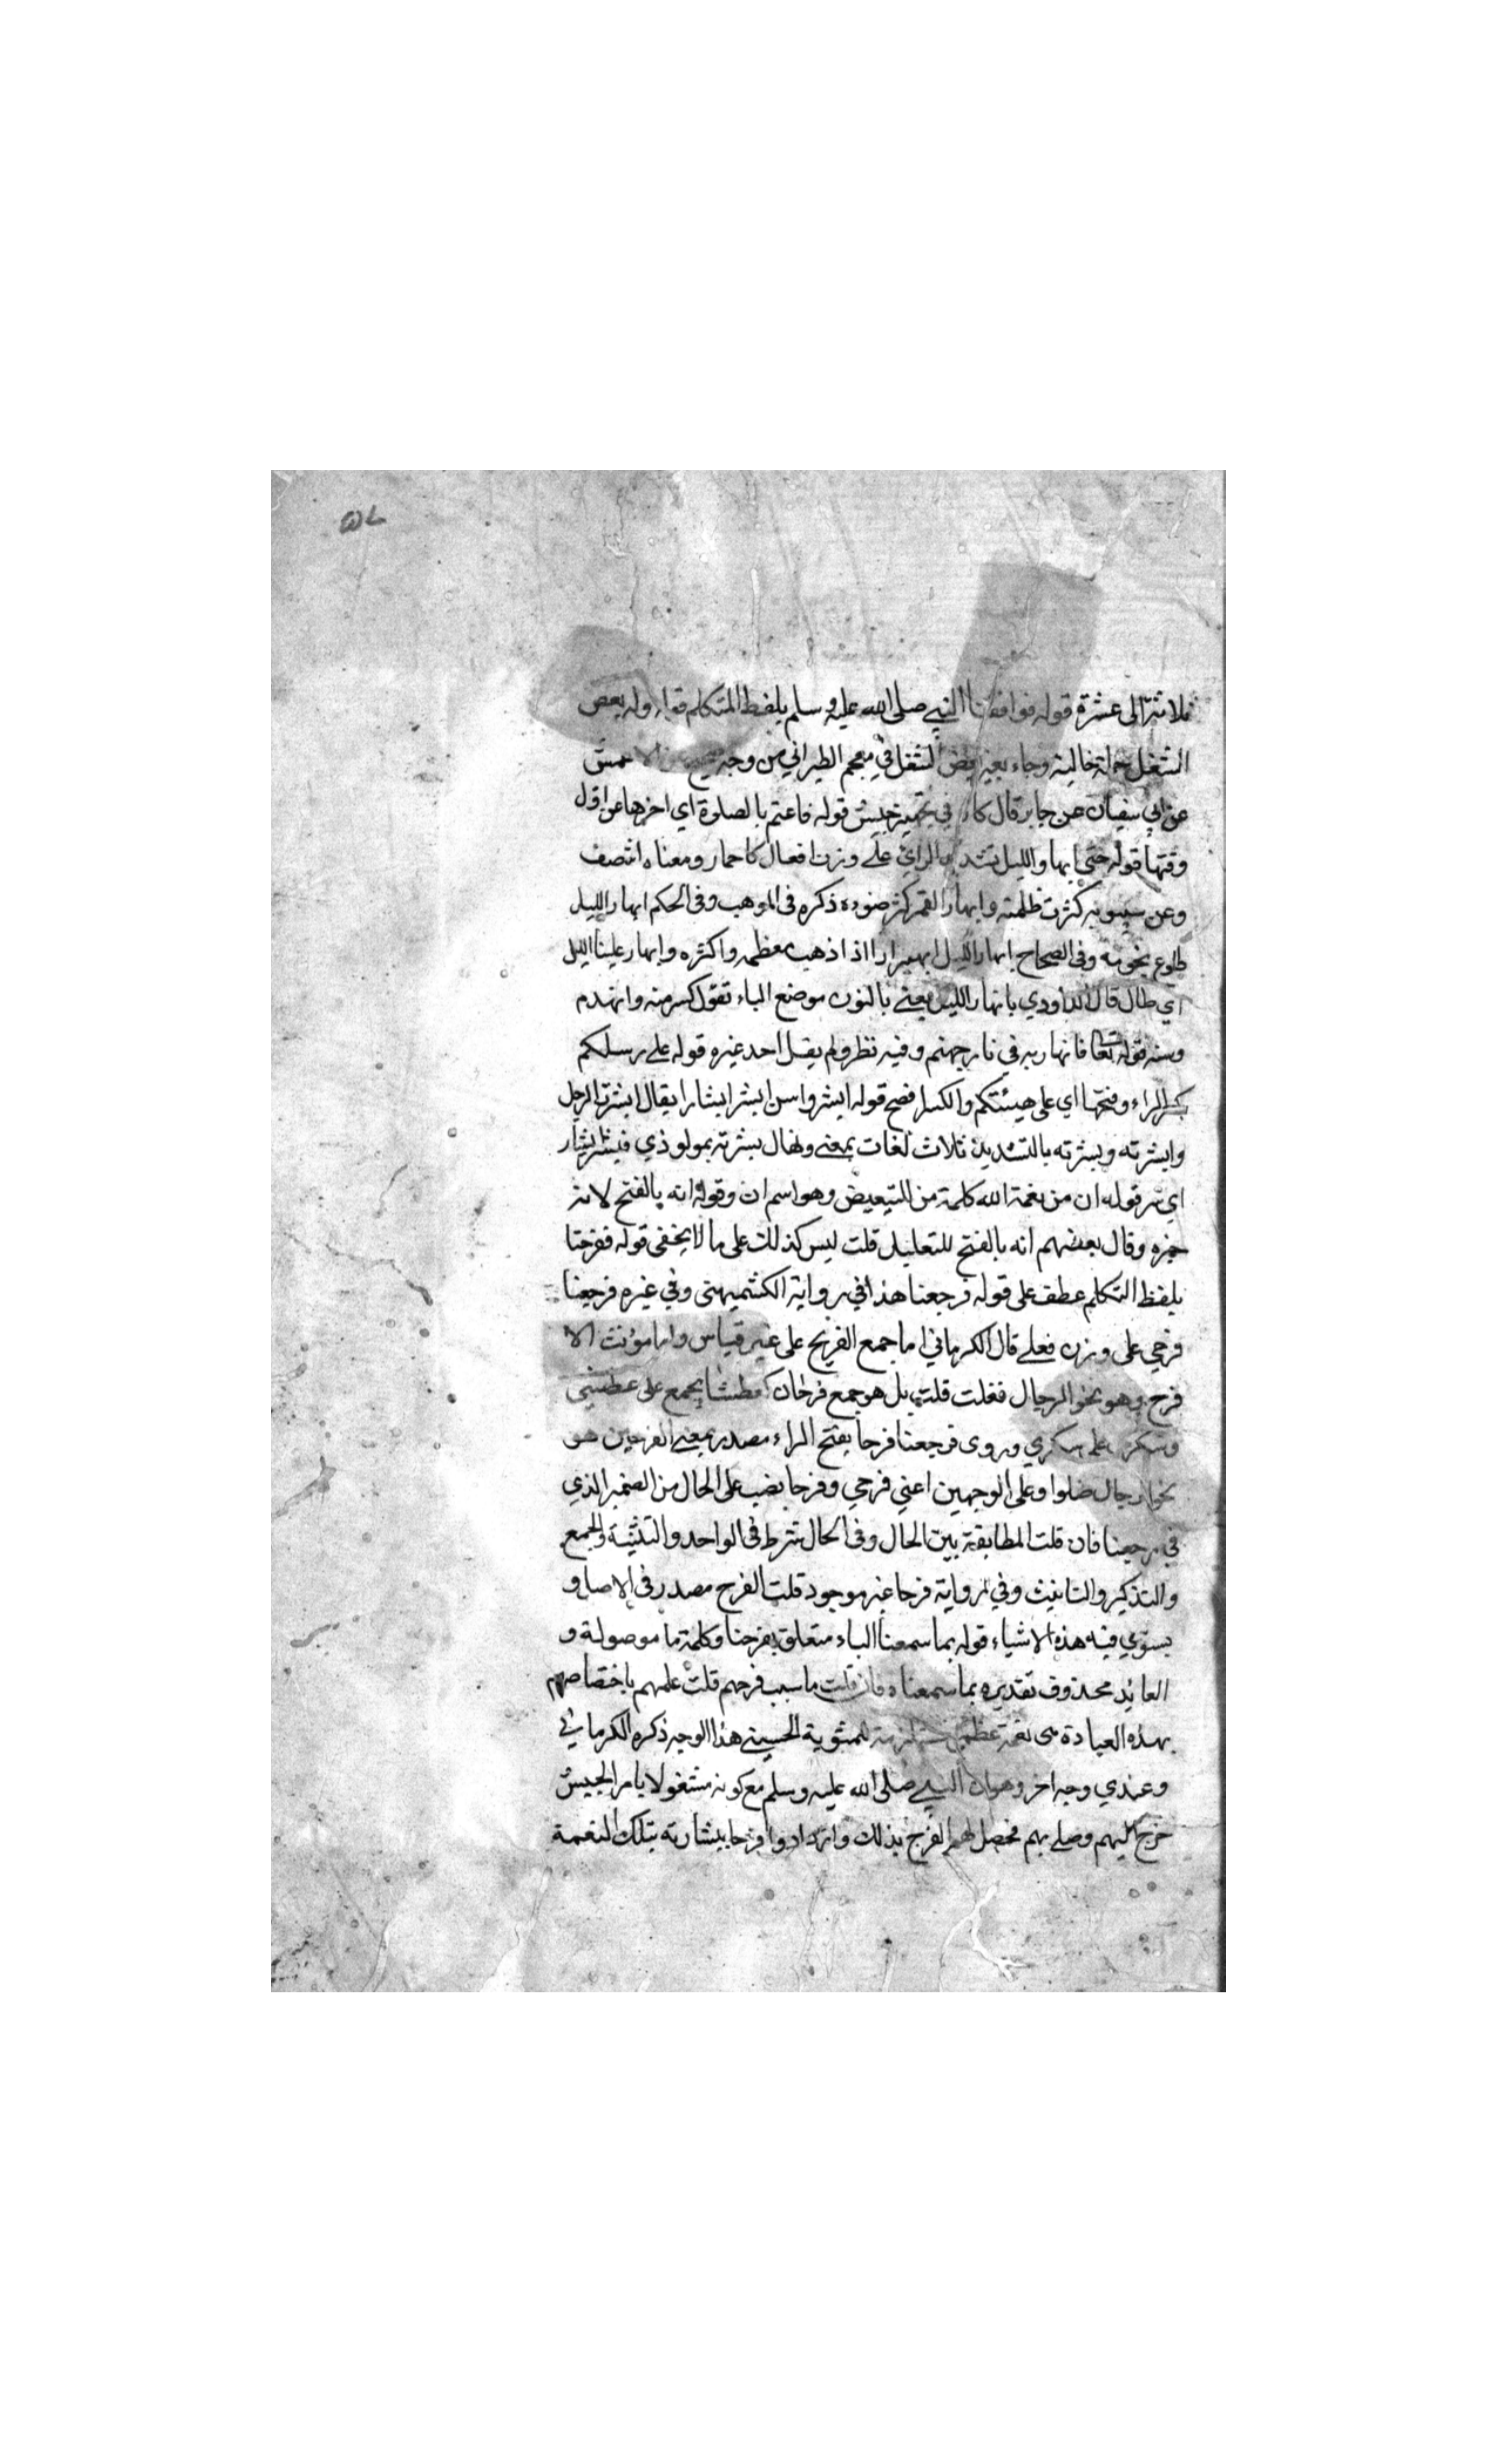 ثلاثة الى عشرة قوله فوافقنا النبي صلى الله عليه وسلم بلفظ المتكلم قوله وله بعض
الشغل جملة حالية وجاء بعض الشغل في معجم الطبراني من وجه صحيح عن الاعمش
عن ابي سفيان عن جابر قال كان في تجهيز جيش قوله فاعتم بالصلوة اي اخرها عن اول
وقتها قوله حتى ابهار الليل بتشديد الراي على وزن افعال كاحمار ومعناه انتصف
وعن سيبويه كثرت ظلمته وابهار القمر كثر ضوءه ذكره في الموهب وفي الحكم ابهار الليل
طلوع نجومه وفي الصحاح ابهار الليل ابهيرارا اذا ذهب معظمه واكثره وابهار علينا الليل
اي طال قال الداودي بانهار الليل يعني بالنون موضع الباء تقول كسر منه وانهدم
ومنه قوله تعا فانهار به في نار جهنم وفيه نظر ولم يقل احد غيره قوله على رسلكم
بكسر الراء وفتحها اي على هيئتكم والكسر افصح قوله ابشروا من ابشر ابشارا يقال ابشرت الرجل
وابشرته وبشرته بالتشديد ثلاث لغات بمعنى ويقال بشرته بمولود ذي فبشر ابشار
اي سر قوله ان من نعمة الله كلمة من للتبعيض وهو اسم ان وقوله انه بالفتح لانه
خبره وقال بعضهم انه بالفتح للتعليل قلت ليس كذلك على ما لا يخفى قوله ففرحتا
بلفظ المتكلم عطف على قوله فرجعنا هذا في رواية الكشميهني وفي غيره فرجعنا
فرحي على وزن فعلى قال الكرماني اما جمع الفريح على غير قياس واما مونث الا
فرح وهو نحو الرجال فعلت قلت بل هو جمع فرحان كعطشان يجمع على عطشى
وسكران على سكري وروى فرجعنا فرحا بفتح الراء مصدر بمعنى الفرحين هو
نحو الرجال ضلوا وعلى الوجهين اعني فرحي وفرحا نصب على الحال من الضمير الذي
في رجعنا فان قلت المطابقة بين الحال وذي الحال شرط في الواحد والتثنية والجمع
والتذكير والتانيث وفي رواية فرحا غير موجود قلت الفرح مصدر في الاصل و
يستوي فيه هذه الاشياء قوله بما سمعنا الباء متعلق بفرحنا وكلمة ما موصولة و
العايد محذوف تقديره بما سمعناه فان قلت ما سبب فرحهم قلت علمهم باختصاصهم
بهذه العبادة هى نعمة عظمى مستلزمة للمثوبة الحسنى هذا الوجه ذكره الكرماني
وعندي وجه اخر وهو ان النبي صلى الله عليه وسلم مع كونه مشغولا بامر الجيش
خرج اليهم وصلى بهم فحصل لهم الفرح بذلك وازدادوا فرحا ببشارته بتلك النعمة